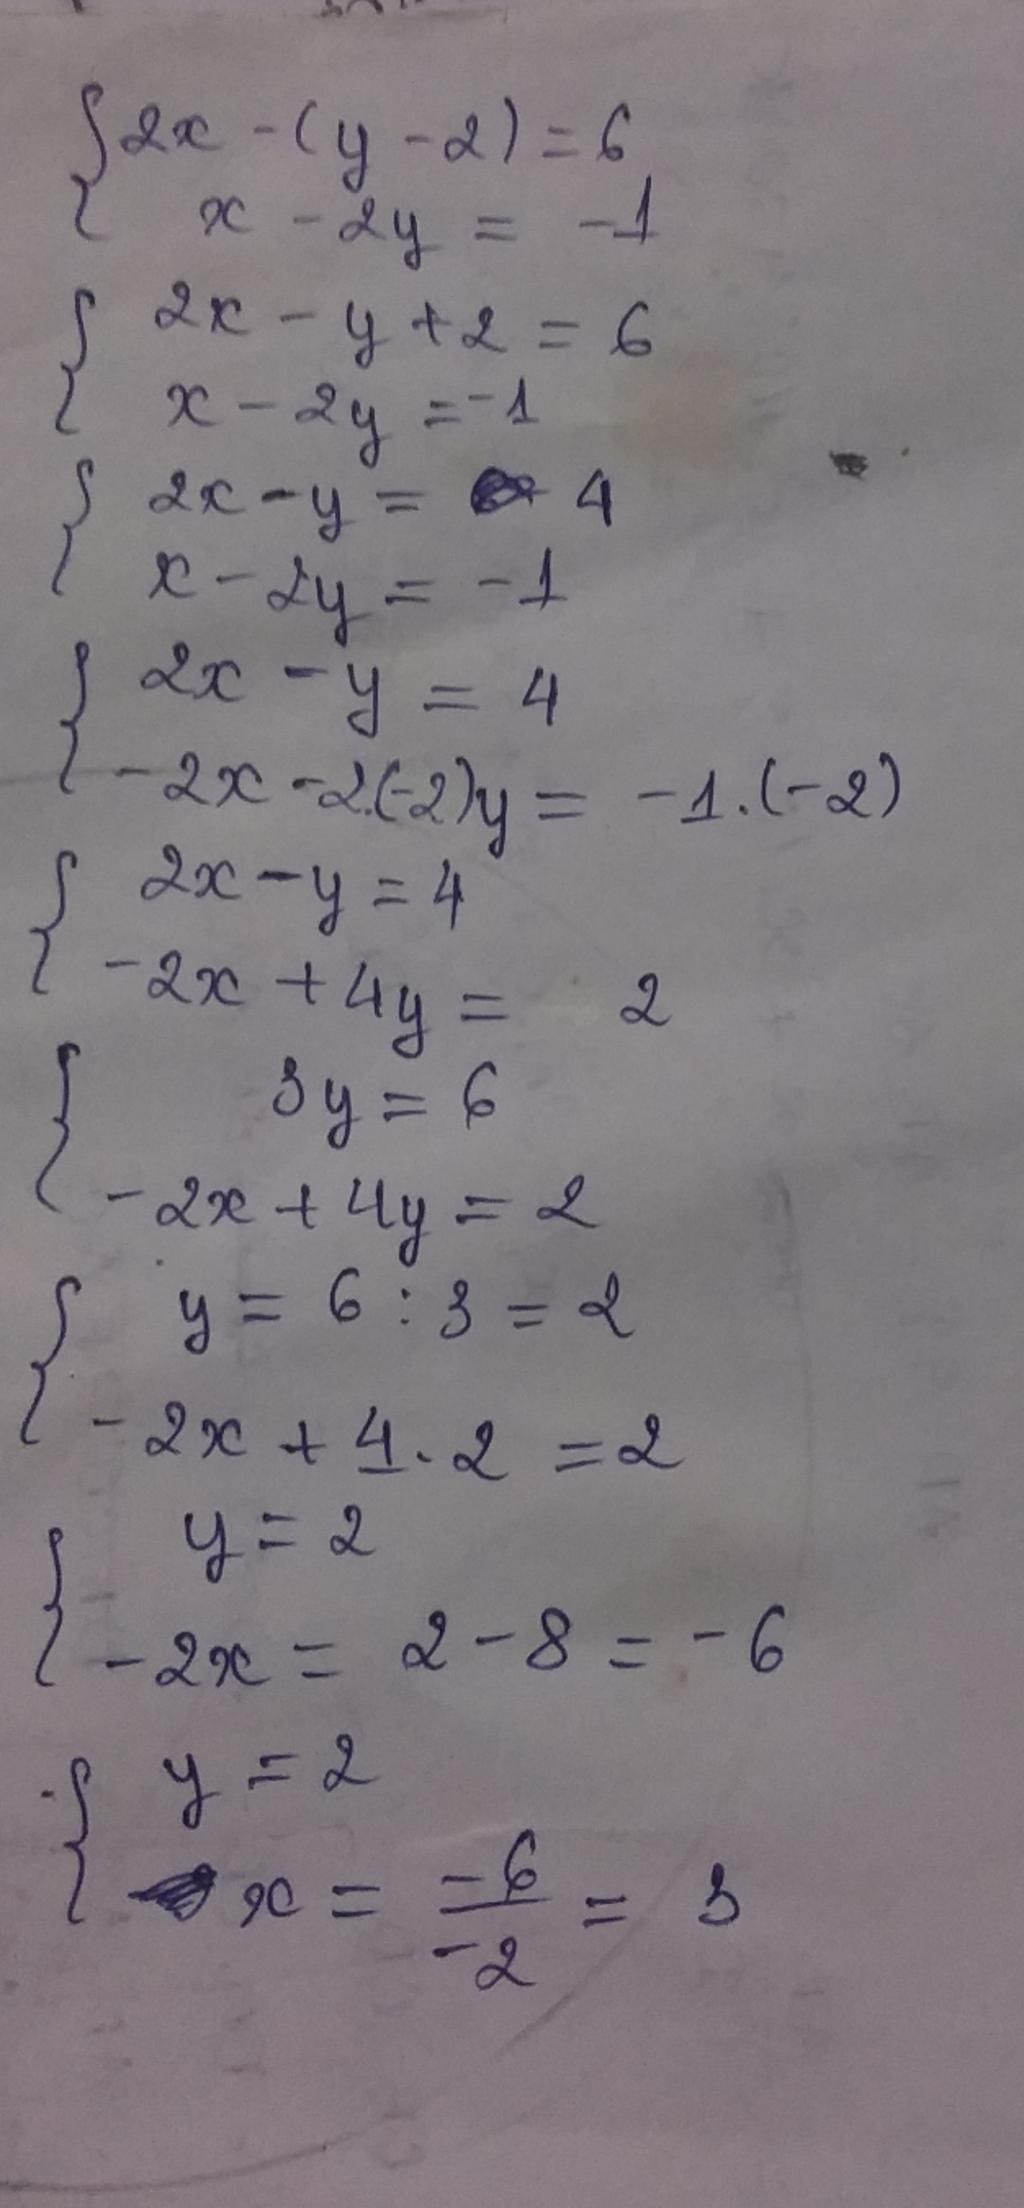 {2x - (y - 2) = 6
x - 2y = -1
{2x - y + 2 = 6
x - 2y = -1
{2x - y = 4
x - 2y = -1
{2x - y = 4
-2x - 2.(-2)y = -1.(-2)
{2x - y = 4
-2x + 4y = 2
{3y = 6
-2x + 4y = 2
{y = 6 : 3 = 2
-2x + 4.2 = 2
{y = 2
-2x = 2 - 8 = -6
{y = 2
x = -6/-2 = 3